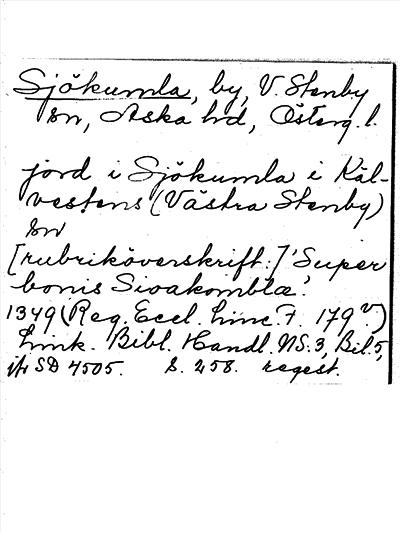 Sjökumla, by, V. Stenby
sn, Aska hd, Österg. l.
jord i Sjökumla i Käl-
vestens (Västra Stenby)
sn
[rubriköverskrift:] 'Super
bonis Sioakombla'.
1349 (Reg. Eccl. Linc. f. 179 v)
Link. Bibl. Handl. NS. 3, Bil. 5,
jfr SD 4505. S. 258. regest.